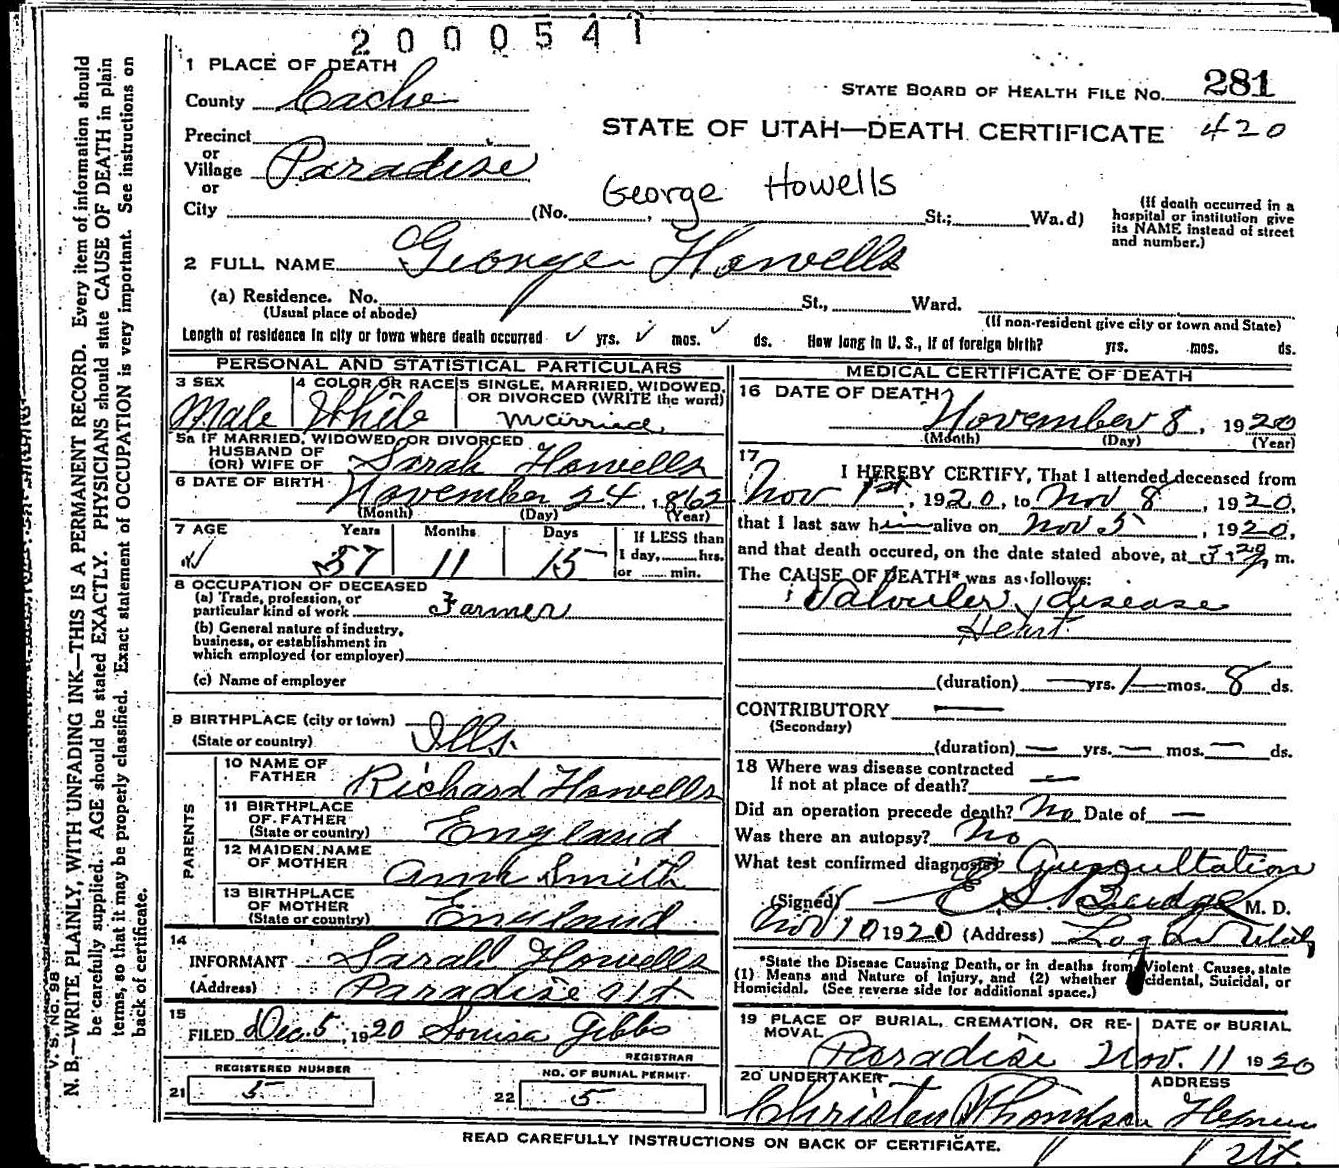 2000541
1 PLACE OF DEATH
County Cache
STATE BOARD OF HEALTH FILE No. 281
Precinct
STATE OF UTAH—DEATH CERTIFICATE 420
or
Village Paradise
or
George Howells
City (No. , St.; Wa.d)
(If death occurred in a hospital or institution give its NAME instead of street and number.)
2 FULL NAME George Howells
(a) Residence. No. St., Ward.
(Usual place of abode) (If non-resident give city or town and State)
Length of residence in city or town where death occurred ✓ yrs. ✓ mos. ✓ ds. How long in U. S., if of foreign birth? yrs. mos. ds.
PERSONAL AND STATISTICAL PARTICULARS
3 SEX Male
4 COLOR OR RACE White
5 SINGLE, MARRIED, WIDOWED, OR DIVORCED (WRITE the word) Married
5a IF MARRIED, WIDOWED, OR DIVORCED
HUSBAND OF
(OR) WIFE OF Sarah Howells
6 DATE OF BIRTH November 24, 1862
(Month) (Day) (Year)
7 AGE Years Months Days If LESS than
57 11 15 1 day, hrs.
or min.
8 OCCUPATION OF DECEASED
(a) Trade, profession, or
particular kind of work Farmer
(b) General nature of industry,
business, or establishment in
which employed (or employer)
(c) Name of employer
9 BIRTHPLACE (city or town)
(State or country) Ills.
PARENTS
10 NAME OF
FATHER Richard Howells
11 BIRTHPLACE
OF FATHER
(State or country) England
12 MAIDEN NAME
OF MOTHER Ann Smith
13 BIRTHPLACE
OF MOTHER
(State or country) England
14
INFORMANT Sarah Howells
(Address) Paradise Ut
15
FILED Dec. 5, 1920 Louisa Gibbs
REGISTRAR
REGISTERED NUMBER NO. OF BURIAL PERMIT
21 5 22 5
MEDICAL CERTIFICATE OF DEATH
16 DATE OF DEATH
November 8, 1920
(Month) (Day) (Year)
17
I HEREBY CERTIFY, That I attended deceased from
Nov 1st, 1920, to Nov 8, 1920,
that I last saw him alive on Nov 5, 1920,
and that death occured, on the date stated above, at m.
The CAUSE OF DEATH* was as follows:
Valvuler disease
Heart.
(duration) — yrs. 1 mos. 8 ds.
CONTRIBUTORY —
(Secondary)
(duration) — yrs. — mos. — ds.
18 Where was disease contracted
If not at place of death? —
Did an operation precede death? No Date of —
Was there an autopsy? No
What test confirmed diagnosis? Auscultation
(Signed) E S. Budge M. D.
Nov 10 1920 (Address) Logan Utah
*State the Disease Causing Death, or in deaths from Violent Causes, state
(1) Means and Nature of Injury, and (2) whether Accidental, Suicidal, or
Homicidal. (See reverse side for additional space.)
19 PLACE OF BURIAL, CREMATION, OR RE-
MOVAL DATE OF BURIAL
Paradise Nov. 11 1920
20 UNDERTAKER ADDRESS
Christen Thompson
Ut.
READ CAREFULLY INSTRUCTIONS ON BACK OF CERTIFICATE.
V. S. No. 98
N. B.—WRITE PLAINLY, WITH UNFADING INK—THIS IS A PERMANENT RECORD. Every item of information should
be carefully supplied. AGE should be stated EXACTLY. PHYSICIANS should state CAUSE OF DEATH in plain
terms, so that it may be properly classified. Exact statement of OCCUPATION is very important. See instructions on
back of certificate.